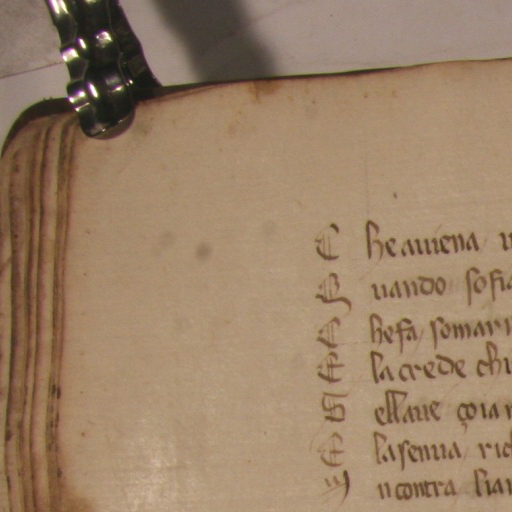 C he auiena
Q uando sofia
C hefa somari
E la crede chi
N ellaue çoia
E la senua ric
I n contra lia